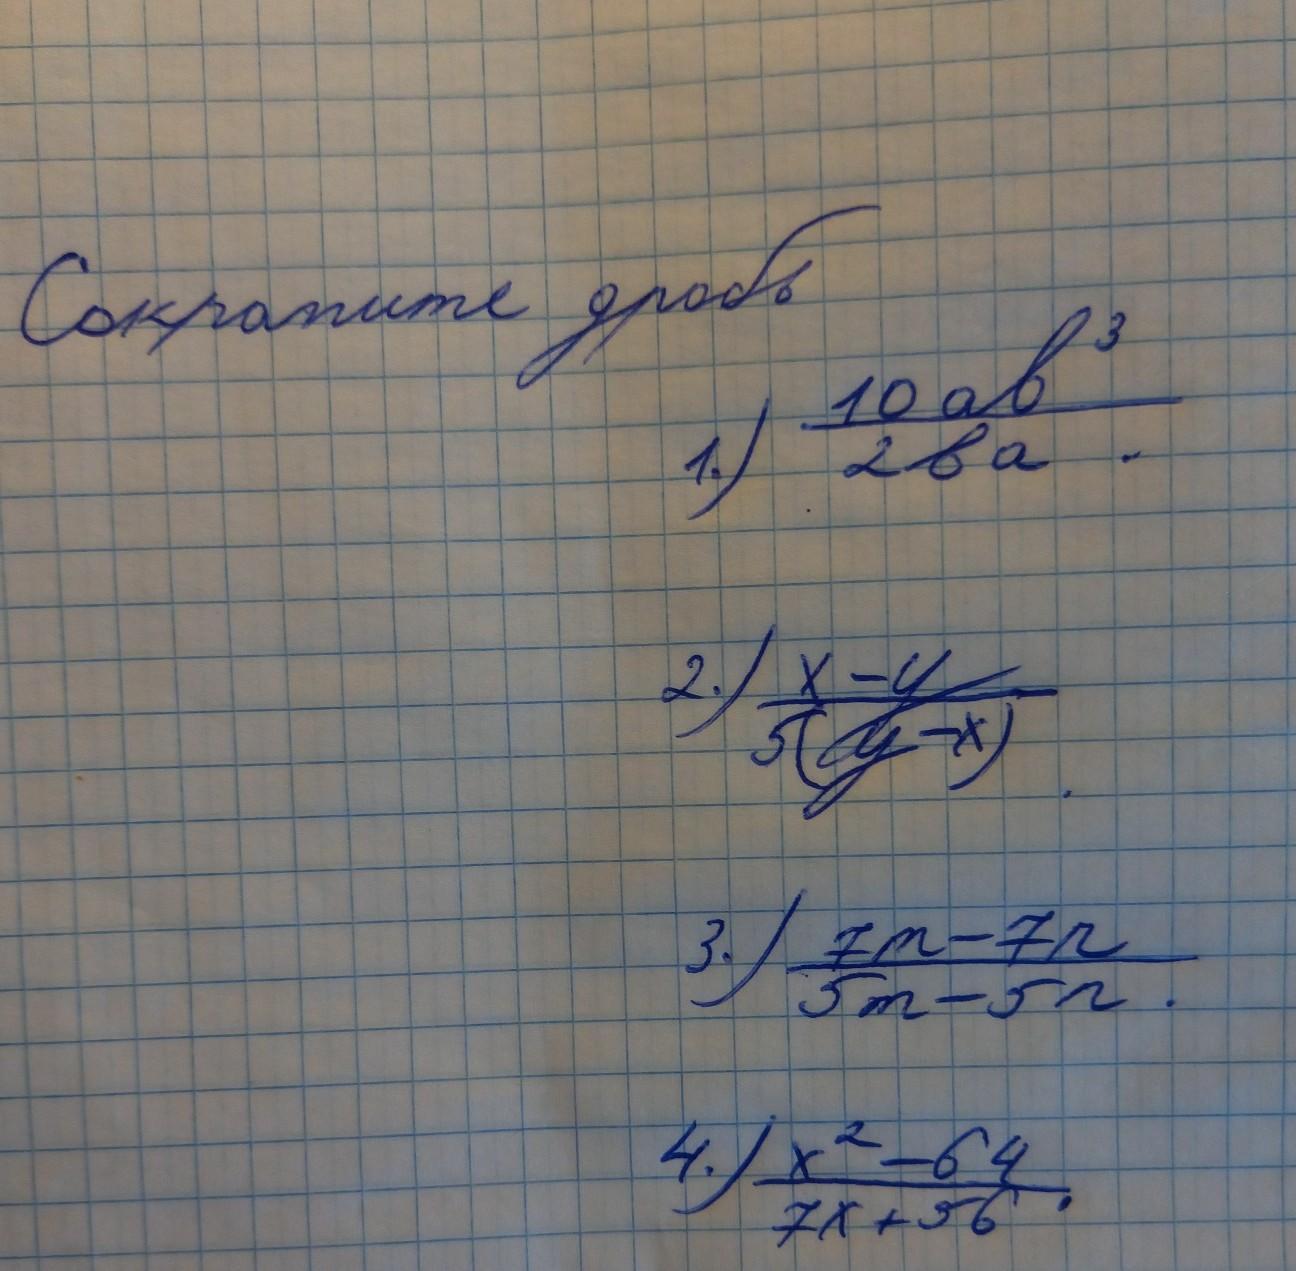 Сократите дробь
1.) 10ab³
2ba .
2.) x-y
5(y-x) .
3.) 7m-7n
5m-5n .
4.) x²-64
7x+56 .